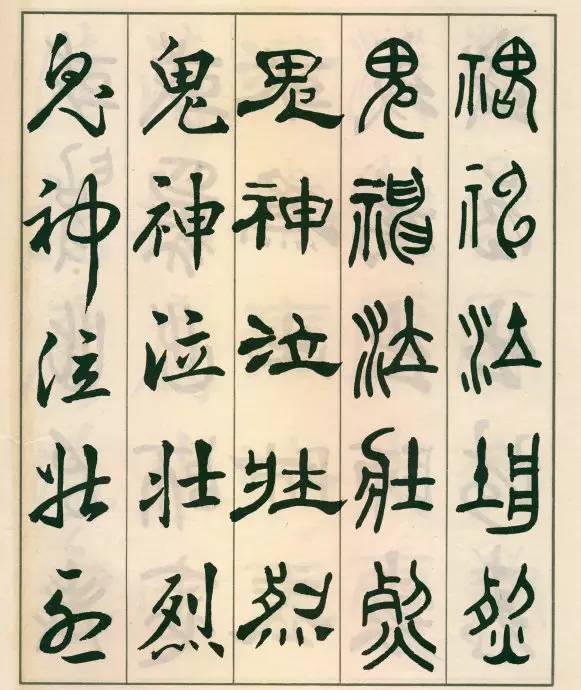 鬼神泣壯烈
鬼神泣壯烈
鬼神泣壯烈
鬼神泣壮烈
鬼神泣壮烈